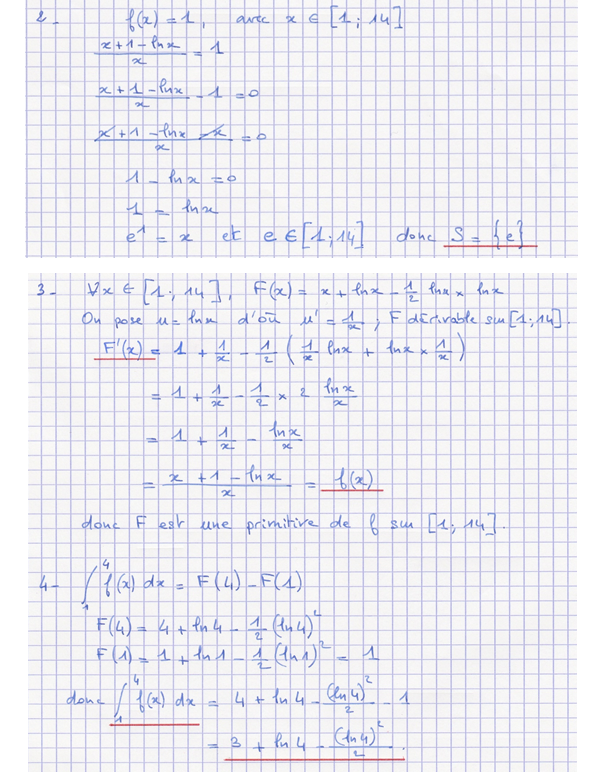 2- f(x) = 1, avec x ∈ [1; 14]
(x + 1 - ln x)/x = 1
(x + 1 - ln x)/x - 1 = 0
(x + 1 - ln x - x)/x = 0
1 - ln x = 0
1 = ln x
e¹ = x et e ∈ [1; 14] donc S = {e}
3- ∀x ∈ [1; 14], F(x) = x + ln x - 1/2 ln x × ln x
On pose u = ln x d'où u' = 1/x ; F dérivable sur [1; 14].
F'(x) = 1 + 1/x - 1/2 (1/x ln x + ln x × 1/x)
= 1 + 1/x - 1/2 × 2 ln x/x
= 1 + 1/x - ln x/x
= (x + 1 - ln x)/x = f(x)
donc F est une primitive de f sur [1; 14].
4- ∫₁⁴ f(x) dx = F(4) - F(1)
F(4) = 4 + ln 4 - 1/2 (ln 4)²
F(1) = 1 + ln 1 - 1/2 (ln 1)² = 1
donc ∫₁⁴ f(x) dx = 4 + ln 4 - (ln 4)²/2 - 1
= 3 + ln 4 - (ln 4)²/2.